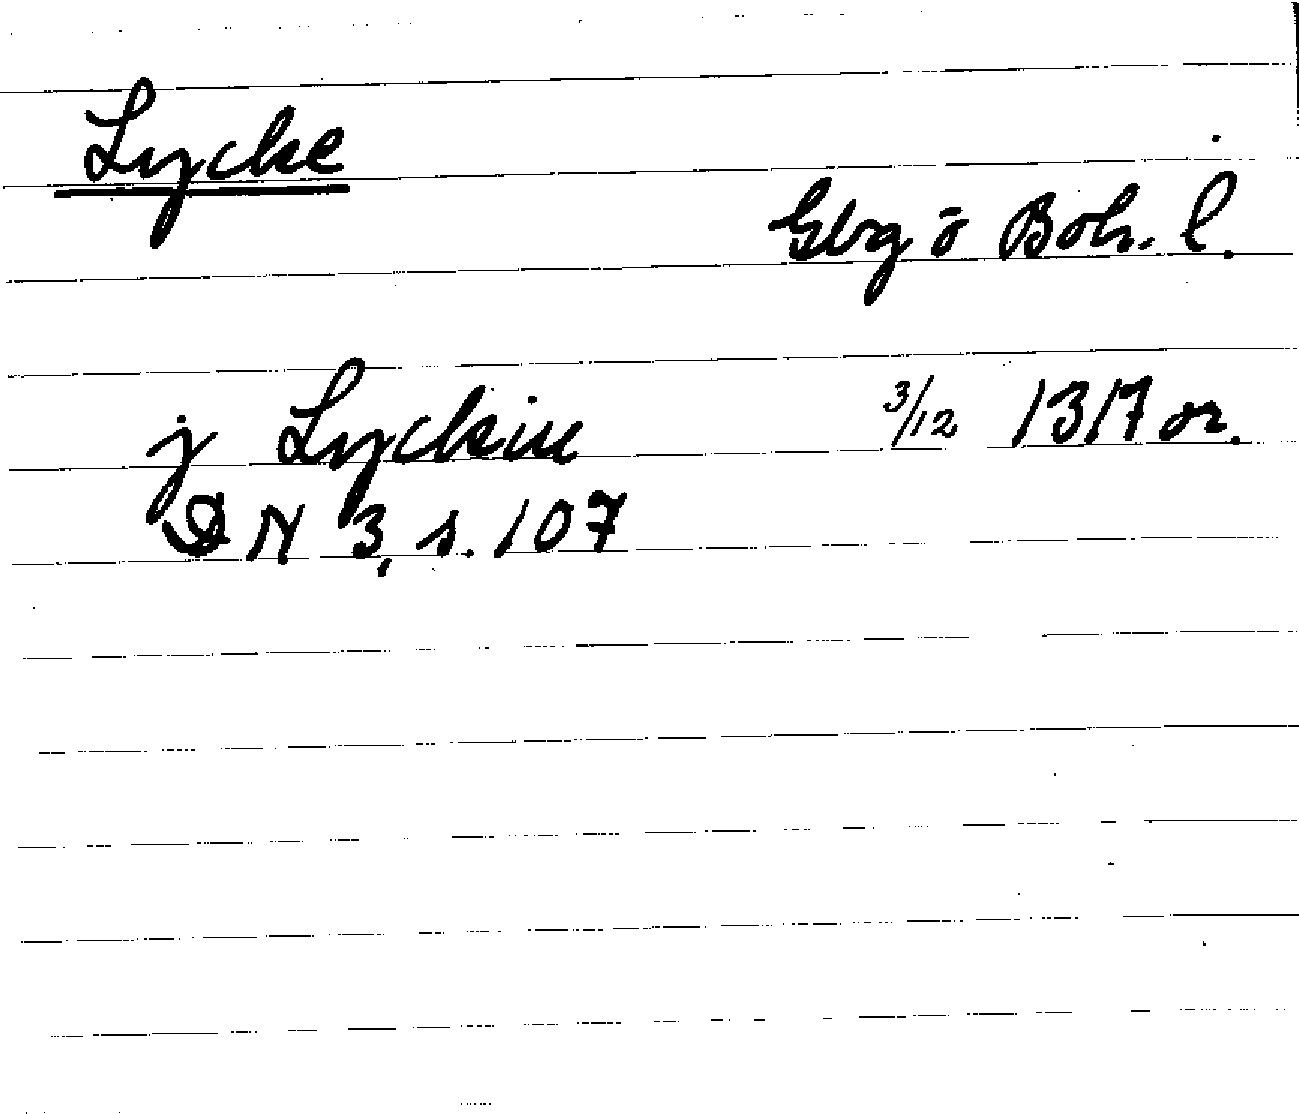 Lycke
Gbg o Boh. l.
j Lyckiu 3/12 1317 or.
DN 3, s. 107